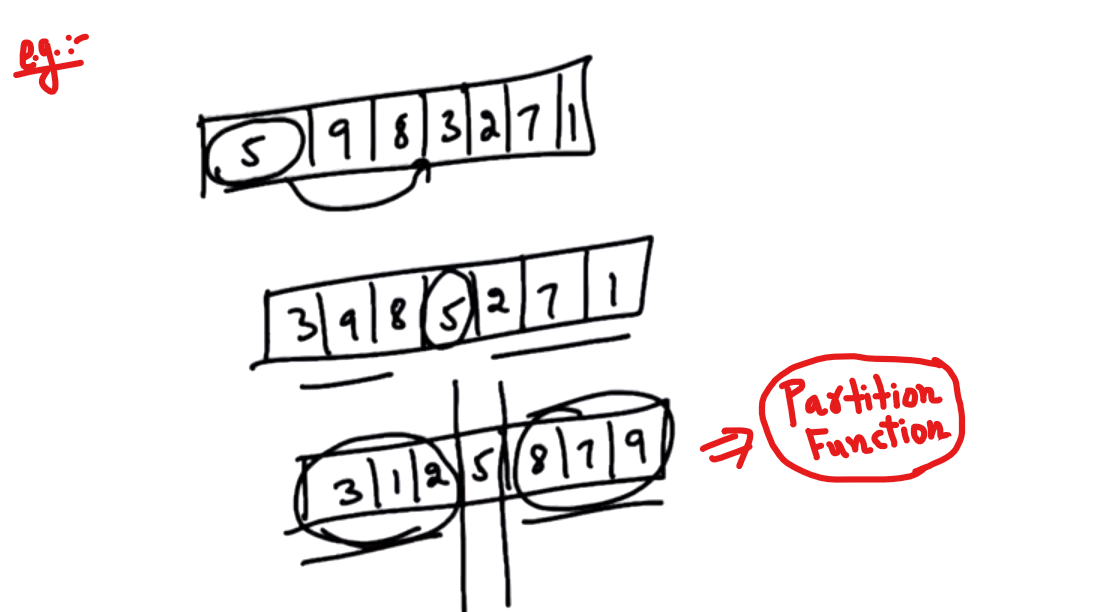 e.g.:-
5 9 8 3 2 7 1
3 9 8 5 2 7 1
3 1 2 5 8 7 9
⇒ Partition
Function